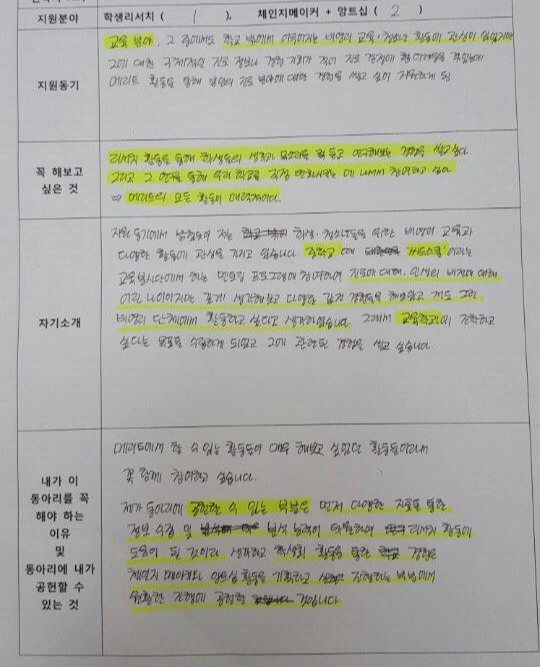 지원분야 학생리서치 ( 1 ), 체인지메이커 + 앙트십 ( 2 )
지원동기
교육 분야, 그 중에서도 학교 밖에서 이루어지는 비영리 교육·청소년 활동에 관심이 있었지만
그에 대한 구체적인 진로 정보나 경험 기회가 적어 진로 결정에 어려움을 겪었는데
메리트 활동을 통해 본인의 진로 분야에 대한 경험을 쌓고 싶어 지원하게 됨
꼭 해보고
싶은 것
리서치 활동을 통해 학생들의 생각과 목소리를 듣고 연구해보는 경험을 쌓고 싶다
그리고 그 연구를 통해 우리 학교를 직접 변화시키는 데 나서서 참여하고 싶다
⇒ 메리트의 모든 활동이 매력적이다.
자기소개
지원 동기에서 밝혔듯이 저는 학생·청소년들을 위한 비영리 교육과
다양한 활동에 관심을 가지고 있습니다. 중학교 때 이라는
교육봉사단에서 하는 멘토링 프로그램에 참여하여 진로에 대해, 인생의 비전에 대해
어린 나이이지만 깊게 생각해보고 다양한 값진 경험들을 해보았고 저도 그런
비영리 단체에서 활동하고 싶다고 생각하였습니다. 그래서 교육학과에 진학하고
싶다는 목표를 수립하게 되었고 그에 관련된 경험을 쌓고 싶습니다.
내가 이
동아리를 꼭
해야 하는
이유
및
동아리에 내가
공헌할 수
있는 것
메리트에서 할 수 있는 활동들이 매우 해보고 싶었던 활동들이라서
꼭 함께 참여하고 싶습니다.
제가 동아리에 공헌할 수 있는 부분은 먼저 다양한 자료를 통한
정보 수집 및 분석 능력이 탁월하여 리서치 활동에
도움이 될 것이라 생각하고 학생회 활동을 통한 경험은
체인지 메이커와 앙트십 활동을 기획하고 진행하는 부분에서
원활한 진행에 공헌할 것입니다.